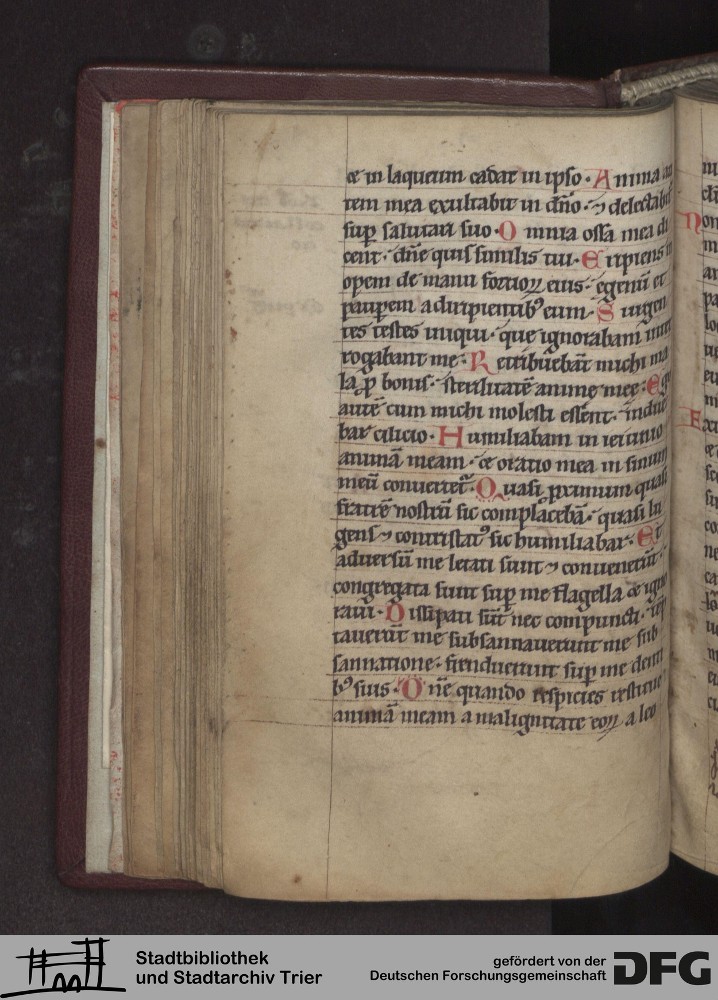 ce in laqueum cadat in ipso. Anima au
tem mea exultabit in dño. ⁊ delectabit
suꝑ salutari suo. Omnia ossa mea di
cent. dñe quis similis tui. Eripiens in
opem de manu fortioꝝ eius. egenũ et
pauꝑem a diripientibꝰ eum. Surgen
tes testes iniqui. que ignorabam int̾
rogabant me. Retribuebãt michi ma
la ꝓ bonis. sterilitatẽ anime mee. Ego
autẽ cum michi molesti essent. indue
bar cilicio. Humiliabam in ieiunio
animã meam. ce oratio mea in sinum
meũ conuertet̾. Quasi ꝓximum quasi
fratrẽ nostrũ sic complacebã. quasi lu
gens ⁊ contristatꝰ sic humiliabar. Et
aduersũ me letati sunt ⁊ conuenerũt.
congregata sunt suꝑ me flagella ce igno
raui. Dissipati sũt nec compuncti. tẽp
tauerũt me subsannauerunt me sub
sannatione. frenduerunt suꝑ me denti
bꝰ suis. Dñe quando respicies restitue
animã meam a malignitate eoꝝ a leo
Stadtbibliothek
und Stadtarchiv Trier
gefördert von der
Deutschen Forschungsgemeinschaft
DFG